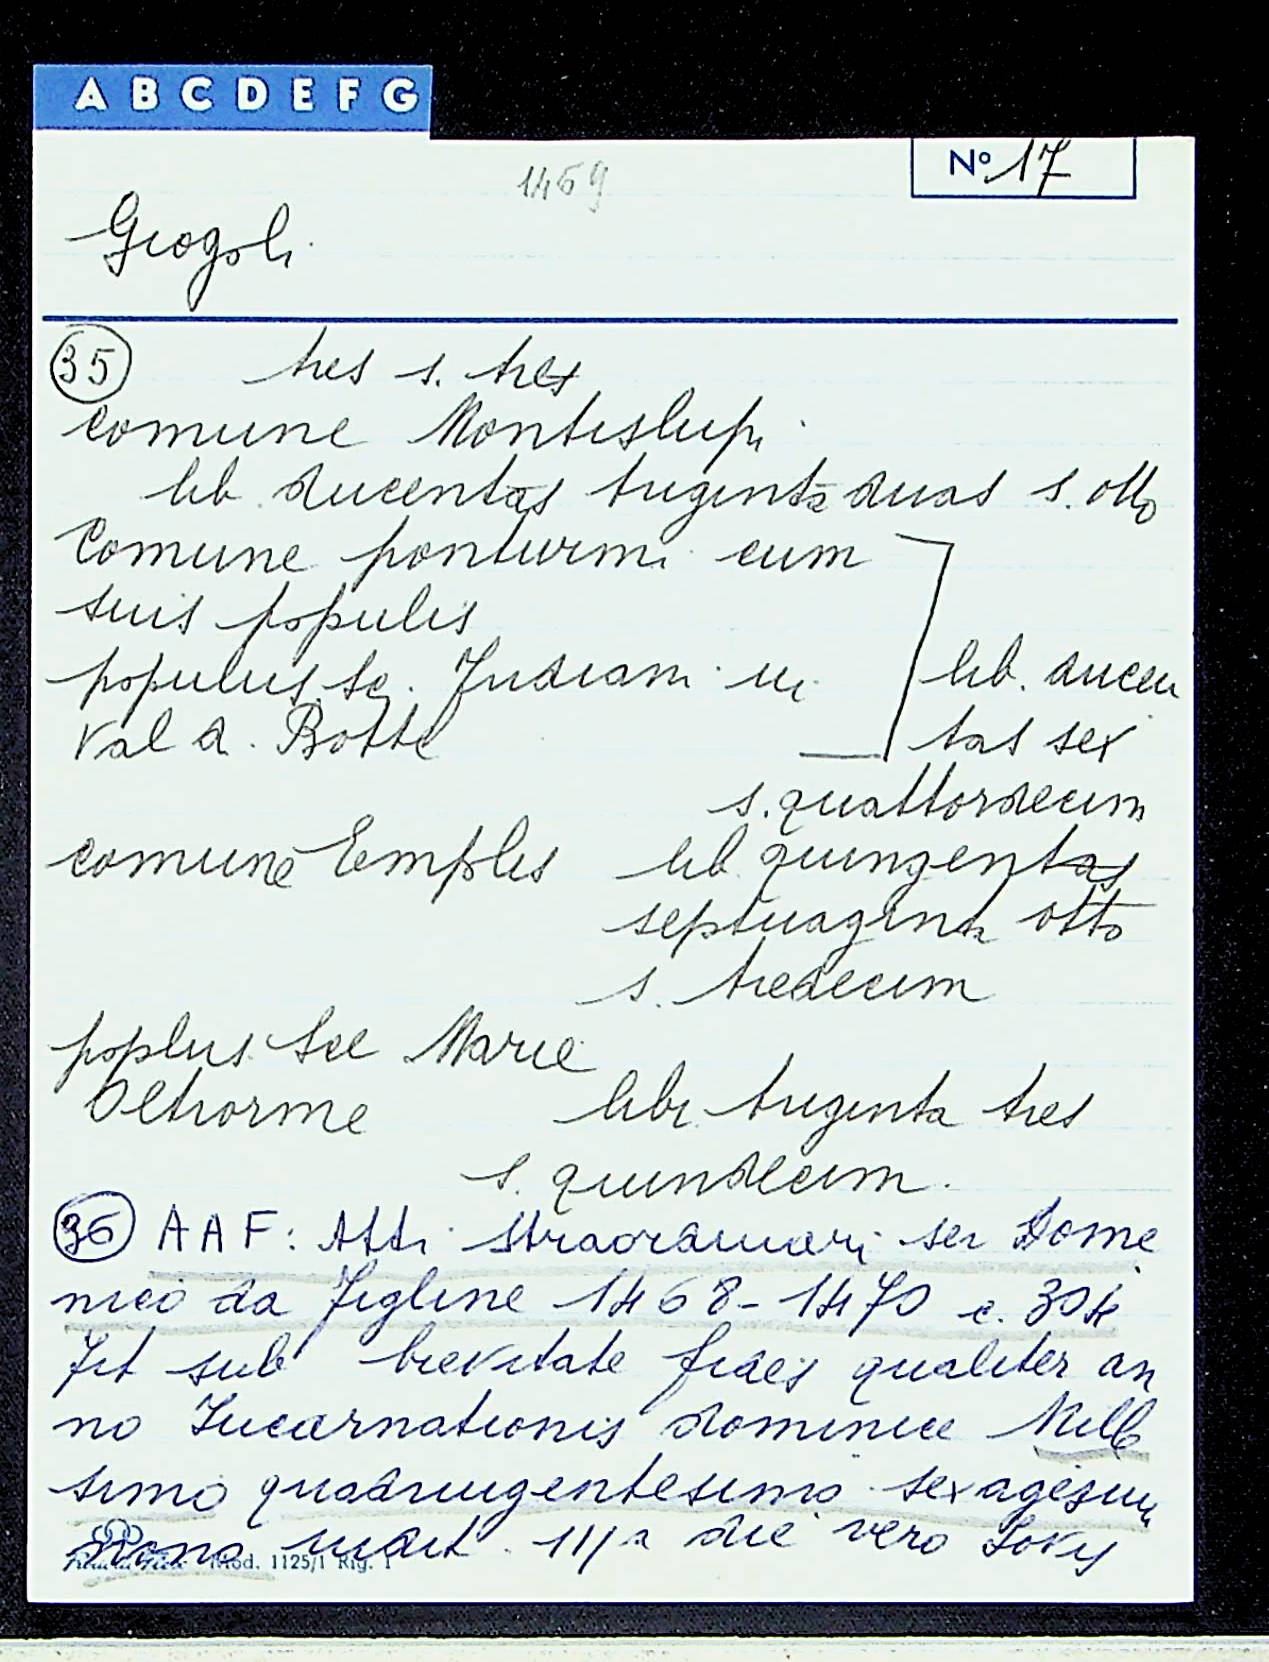 A B C D E F G
1469
Nº 17
Giogoli
35 tres s. tres
comune Montislupi
lib ducentas triginta duas s. otto
Comune ponturmi cum
suis populis
populus. Sci. Judiani in
Val d. Botte
lib. ducen
tas sex
s. quattordecim
comune Empoli lib quingentas
septuaginta otto
s. tredecim
poplus See Marie
Oltrorme libr triginta tres
s. quindecim.
36 AAF: Atti straordinari ser Dome
nico da Figline 1468-1470 c. 304
Fit sub brevitate fides qualiter an
no Incarnationis dominice Mille
simo quadringentesimo sexagesim
Nono indict. III a die vero Jovis
Mod. 1125/1 Rig. 1